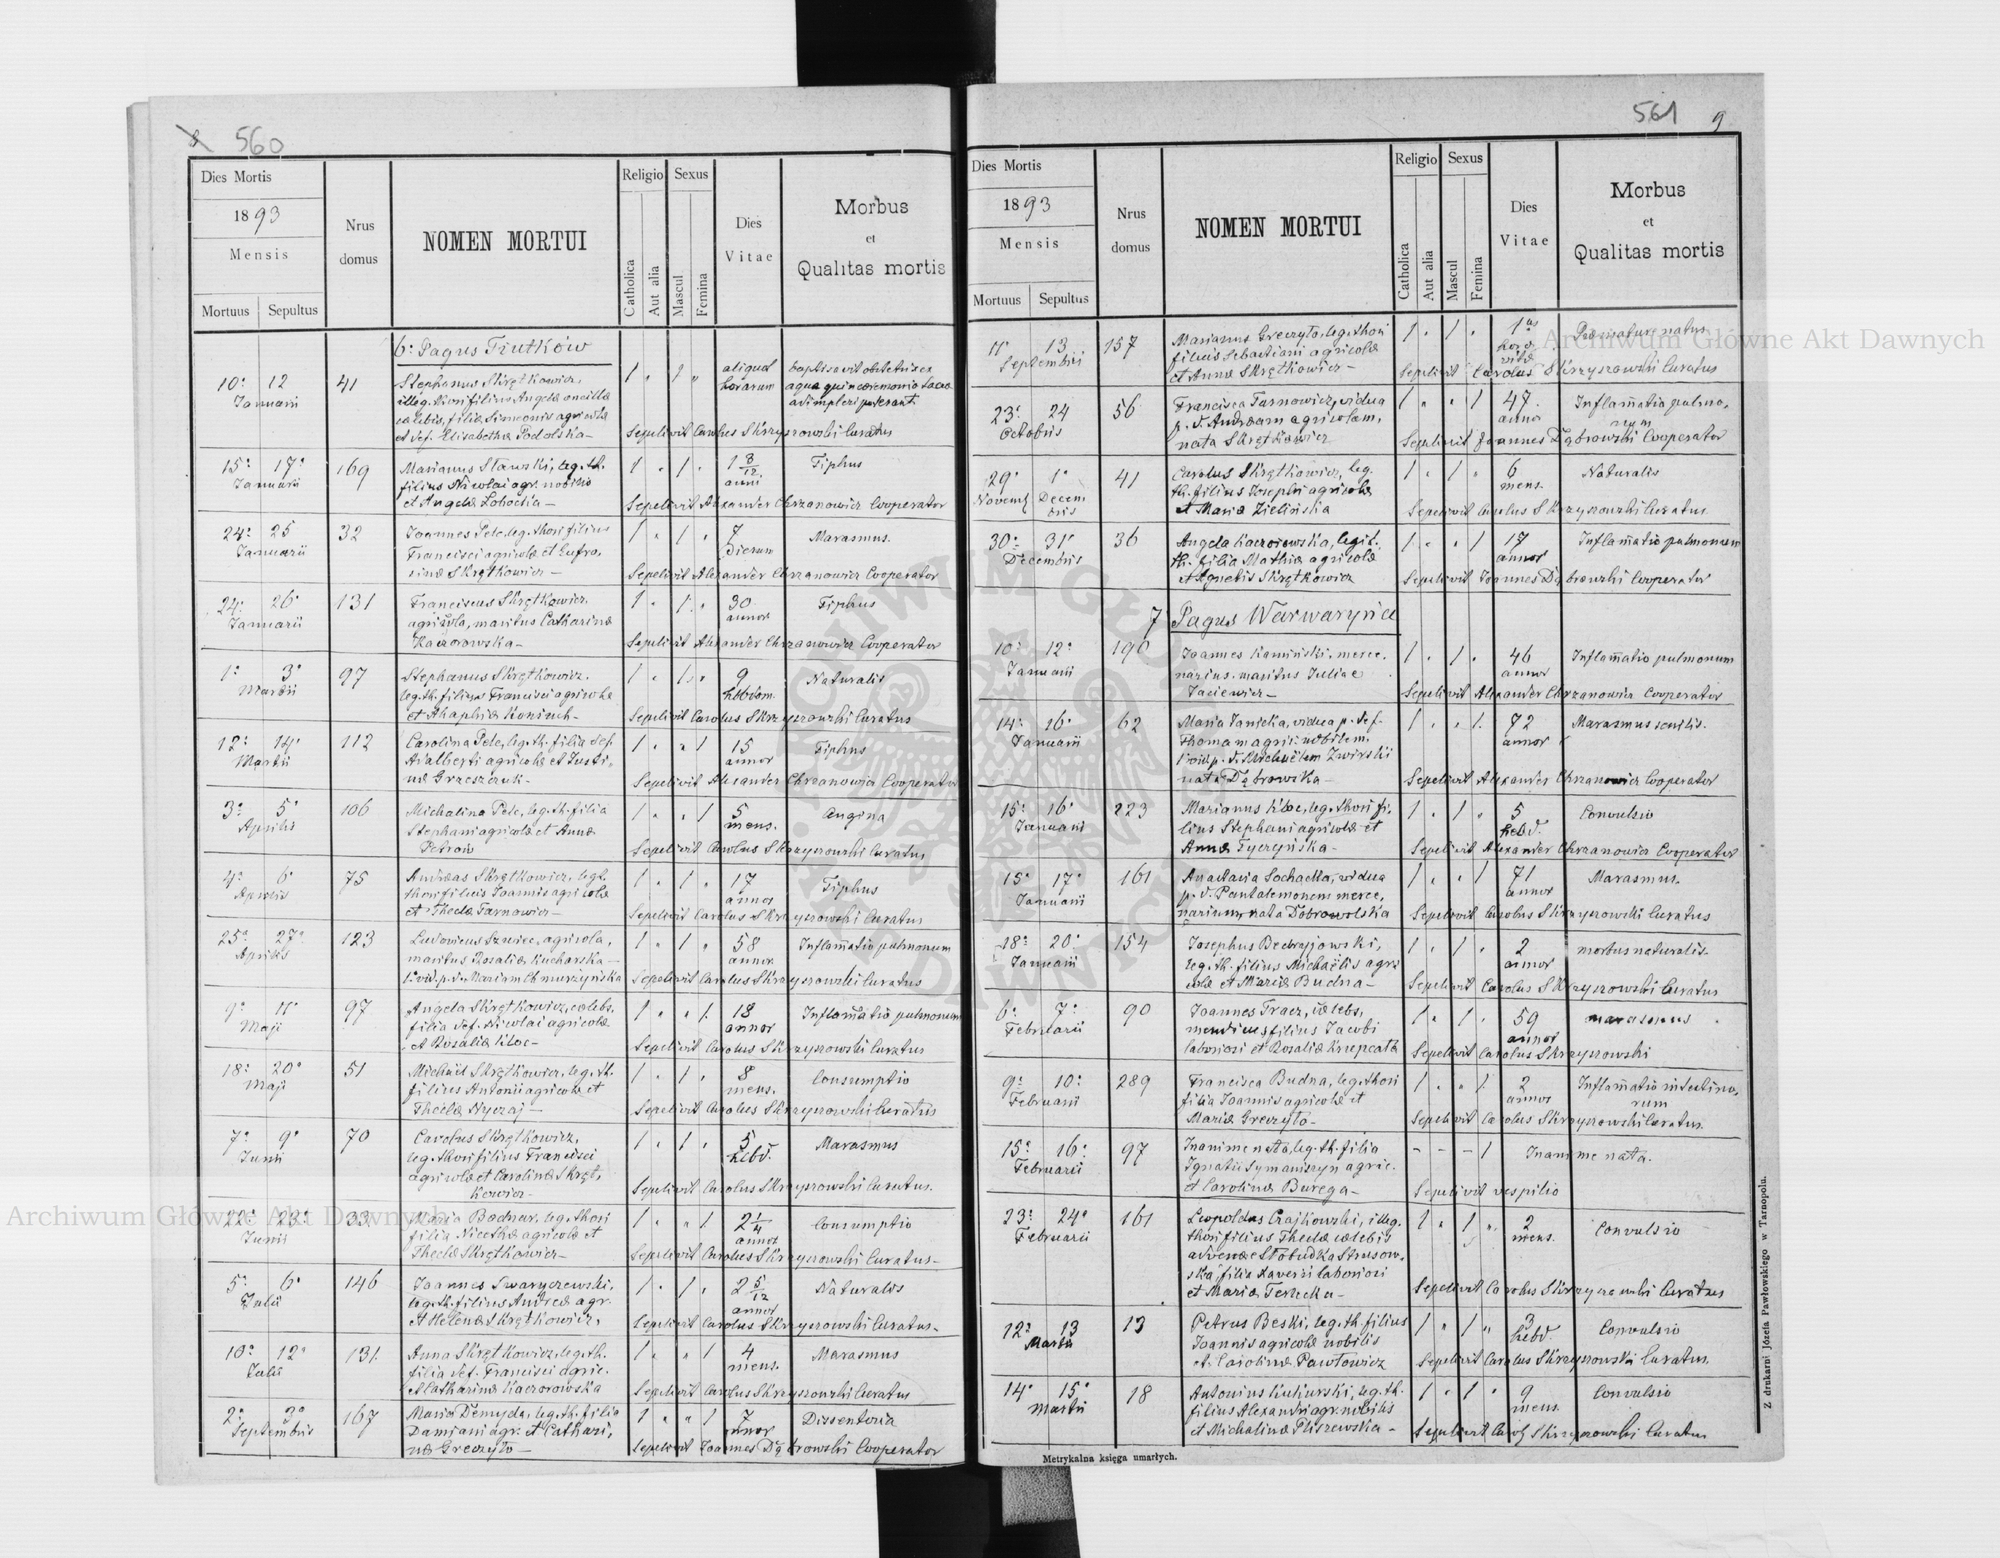 8 560
Dies Mortis
1893
Mensis
Mortuus Sepultus
Nrus domus
NOMEN MORTUI
Religio
Catholica
Aut alia
Sexus
Mascul
Femina
Dies Vitae
Morbus
et
Qualitas mortis
6. Pagus Trutków
10. 12 Januarii 41
Stephanus Skrętkowicz,
illeg. thori filius Angelæ ancillæ
cælebis, filiæ Simeonis agricolæ
et def. Elisabethæ Podolska
1 " 1 "
aliquot horarum
baptisavit obstetrix ex
aqua quin ceremonia sacra
adimpleri poterant
Sepelivit Carolus Skrzyszowski Curatus
15. 17. Januarii 169
Marianus Stawski, leg. th.
filius Nicolai agr. nobilis
et Angelæ Łobocka
1 " 1 "
1 8/12 anni
Tiphus
Sepelivit Alexander Chrzanowicz Cooperator
24. 25 Januarii 32
Joannes Pelc, leg. thori filius
Francisci agricolæ et Eufro,
sinæ Skrętkowicz
1 " 1 "
7 dierum
Marasmus.
Sepelivit Alexander Chrzanowicz Cooperator
24. 26. Januarii 131
Franciscus Skrętkowicz,
agricola, maritus Catharinæ
Kaczorowska
1 " 1 "
30 annor
Tiphus
Sepelivit Alexander Chrzanowicz Cooperator
1. 3. Martii 97
Stephanus Skrętkowicz,
leg. th. filius Francisci agricolæ
et Ahaphiæ
1 " 1 "
9 hebdom.
Naturalis
Sepelivit Carolus Skrzyszowski Curatus
12. 14. Martii 112
Carolina Pelc, leg. th. filia def.
Adalberti agricolæ et Justi,
næ Grzeszczuk
1 " " 1
15 annor
Tiphus
Sepelivit Alexander Chrzanowicz Cooperator
3. 5. Aprilis 106
Michalina Pelc, leg. th. filia
Stephani agricolæ et Annæ
Petrow
1 " " 1
5 mens.
Angina
Sepelivit Carolus Skrzyszowski Curatus
4. 6. Aprilis 75
Andreas Skrętkowicz, legt.
thori filius Joannis agricolæ
et Theclæ Tarnowicz
1 " 1 "
17 annor
Tiphus
Sepelivit Carolus Skrzyszowski Curatus
25. 27. Aprilis 123
Ludovicus Szwiec, agricola,
maritus Rosaliæ Kucharska
1. vid. p. d. Mariam Chmurzyńska
1 " 1 "
58 annor
Inflam̄atio pulmonum
Sepelivit Carolus Skrzyszowski Curatus
9. 11. Maji 97
Angela Skrętkowicz, cælebs,
filia def. Nicolai agricolæ
et Rosaliæ Kłoc
1 " " 1
18 annor
Inflam̄atio pulmonum
Sepelivit Carolus Skrzyszowski Curatus
18. 20. Maji 51
Michael Skrętkowicz, leg. th.
filius Antonii agricolæ et
Theclæ Nyczaj
1 " 1 "
8 mens.
Consumptio
Sepelivit Carolus Skrzyszowski Curatus
7. 9. Junii 70
Carolus Skrętkowicz,
leg. thori filius Francisci
agricolæ et Carolinæ Skręt,
kowicz
1 " 1 "
5 hebd.
Marasmus
Sepelivit Carolus Skrzyszowski Curatus.
22. 23. Junii 33
Maria Bodnar, leg. thori
filia Nicethæ agricolæ et
Theclæ Skrętkowicz
1 " " 1
2 1/4 annor
Consumptio
Sepelivit Carolus Skrzyszowski Curatus
5. 6. Julii 146
Joannes Swaryczewski,
leg. th. filius Andreæ agr.
et Helenæ Skrętkowicz,
1 " 1 "
2 5/12 annor
Naturalis
Sepelivit Carolus Skrzyszowski Curatus
10. 12. Julii 131
Anna Skrętkowicz, leg. th.
filia def. Francisci agric.
et Catharinæ Kaczorowska
1 " " 1
4 mens.
Marasmus
Sepelivit Carolus Skrzyszowski Curatus
2. 3. Septembris 167
Maria Demyda, leg. th. filia
Damiani agr. et Cathari,
næ Greczyło
1 " " 1
7 annor
Dissenteria
Sepelivit Joannes Dąbrowski Cooperator
561 9
Dies Mortis
1893
Mensis
Mortuus Sepultus
Nrus domus
NOMEN MORTUI
Religio
Catholica
Aut alia
Sexus
Mascul
Femina
Dies Vitae
Morbus
et
Qualitas mortis
11. 13 Septembris 157
Marianus Greczyło, leg. thori
filius Sebastiani agricolæ
et Annæ Skrętkowicz
1 " 1 "
1 horæ vitæ
Præmature natus
Sepelivit Carolus Skrzyszowski Curatus
23. 24 Octobris 56
Francisca Tarnowicz, vidua
p. d. Andream agricolam,
nata Skrętkowicz
1 " " 1
47 annor
Inflam̄atio pulmo,
num
Sepelivit Joannes Dąbrowski Cooperator
29. Novemb 1. Decembris 41
Carolus Skrętkowicz, leg.
th. filius Josephi agricolæ
et Mariæ Zielińska
1 " 1 "
6 mens.
Naturalis
Sepelivit Carolus Skrzyszowski Curatus
30. 31. Decembris 36
Angela Kaczorowska, legit.
th. filia Mathiæ agricolæ
et Agnetis Skrętkowicz
1 " " 1
17 annor
Inflam̄atio pulmonum
Sepelivit Joannes Dąbrowski Cooperator
7 Pagus Warwaryńce
10. 12. Januarii 196
Joannes Kamiński, merce.
narius, maritus Juliæ
Jaciewicz
1 " 1 "
46 annor
Inflam̄atio pulmonum
Sepelivit Alexander Chrzanowicz Cooperator
14. 16. Januarii 62
Maria Janicka, vidua p. def.
Thomam agric. nobilem.
1 vid. p. d. Michaëlem Zwirski
nata Dąbrowska
1 " " 1
72 annor
Marasmus senilis.
Sepelivit Alexander Chrzanowicz Cooperator
15. 16. Januarii 223
Marianus Kłoc, leg. thori fi,
lius Stephani agricolæ et
Annæ Tyczyńska
1 " 1 "
5 hebd.
Convulsio
Sepelivit Alexander Chrzanowicz Cooperator
15. 17. Januarii 161
Anastasia Sochacka, vidua
p. d. Pantalemonem merce,
narium, nata Dobrowolska
1 " " 1
71 annor
Marasmus.
Sepelivit Carolus Skrzyszowski Curatus
18. 20. Januarii 154
Josephus Bedryjowski,
leg. th. filius Michaëlis agri
colæ et Mariæ Budna
1 " 1 "
2 annor
mortus naturalis.
Sepelivit Carolus Skrzyszowski Curatus
6. 7. Februarii 90
Joannes Tracz, cælebs,
mendicus, filius Jacobi
laboriosi et Rosaliæ Krzepcata
1 " 1 "
59 annor
marasmus
Sepelivit Carolus Skrzyszowski
9. 10. Februarii 289
Francisca Budna, leg. thori
filia Joannis agricolæ et
Mariæ Greczyło
1 " " 1
2 annor
Inflam̄atio intestino,
rum
Sepelivit Carolus Skrzyszowski Curatus.
15. 16. Februarii 97
Inanime nata, leg. th. filia
Ignatii Symaniszyn agric.
et Carolinæ Burega
- - - 1
Inanime nata.
Sepelivit vespilio
23. 24. Februarii 161
Leopoldus Czajkowski, illeg.
thori filius Theclæ cælebis
advenæ e Słobudka Strusow,
ska filia Xaverii laboriosi
et Mariæ Terlecka
1 " 1 "
2 mens.
Convulsio
Sepelivit Carolus Skrzyszowski Curatus
12. 13 Martii 13
Petrus Beski, leg. th. filius
Joannis agricolæ nobilis
et Carolinæ Pawłowicz
1 " 1 "
3 hebd.
Convulsio
Sepelivit Carolus Skrzyszowski Curatus.
14. 15. Martii 18
Antonius Kukurski, leg. th.
filius Alexandri agr. nobilis
et Michalinæ Pliszewska
1 " 1 "
9 mens.
Convulsio
Sepelivit Carol Skrzyszowski Curatus
Metrykalna księga umarłych.
Z drukarni Józefa Pawłowskiego w Tarnopolu.
Archiwum Główne Akt Dawnych
Archiwum Główne Akt Dawnych
ARCHIWUM GŁÓWNE AKT DAWNYCH